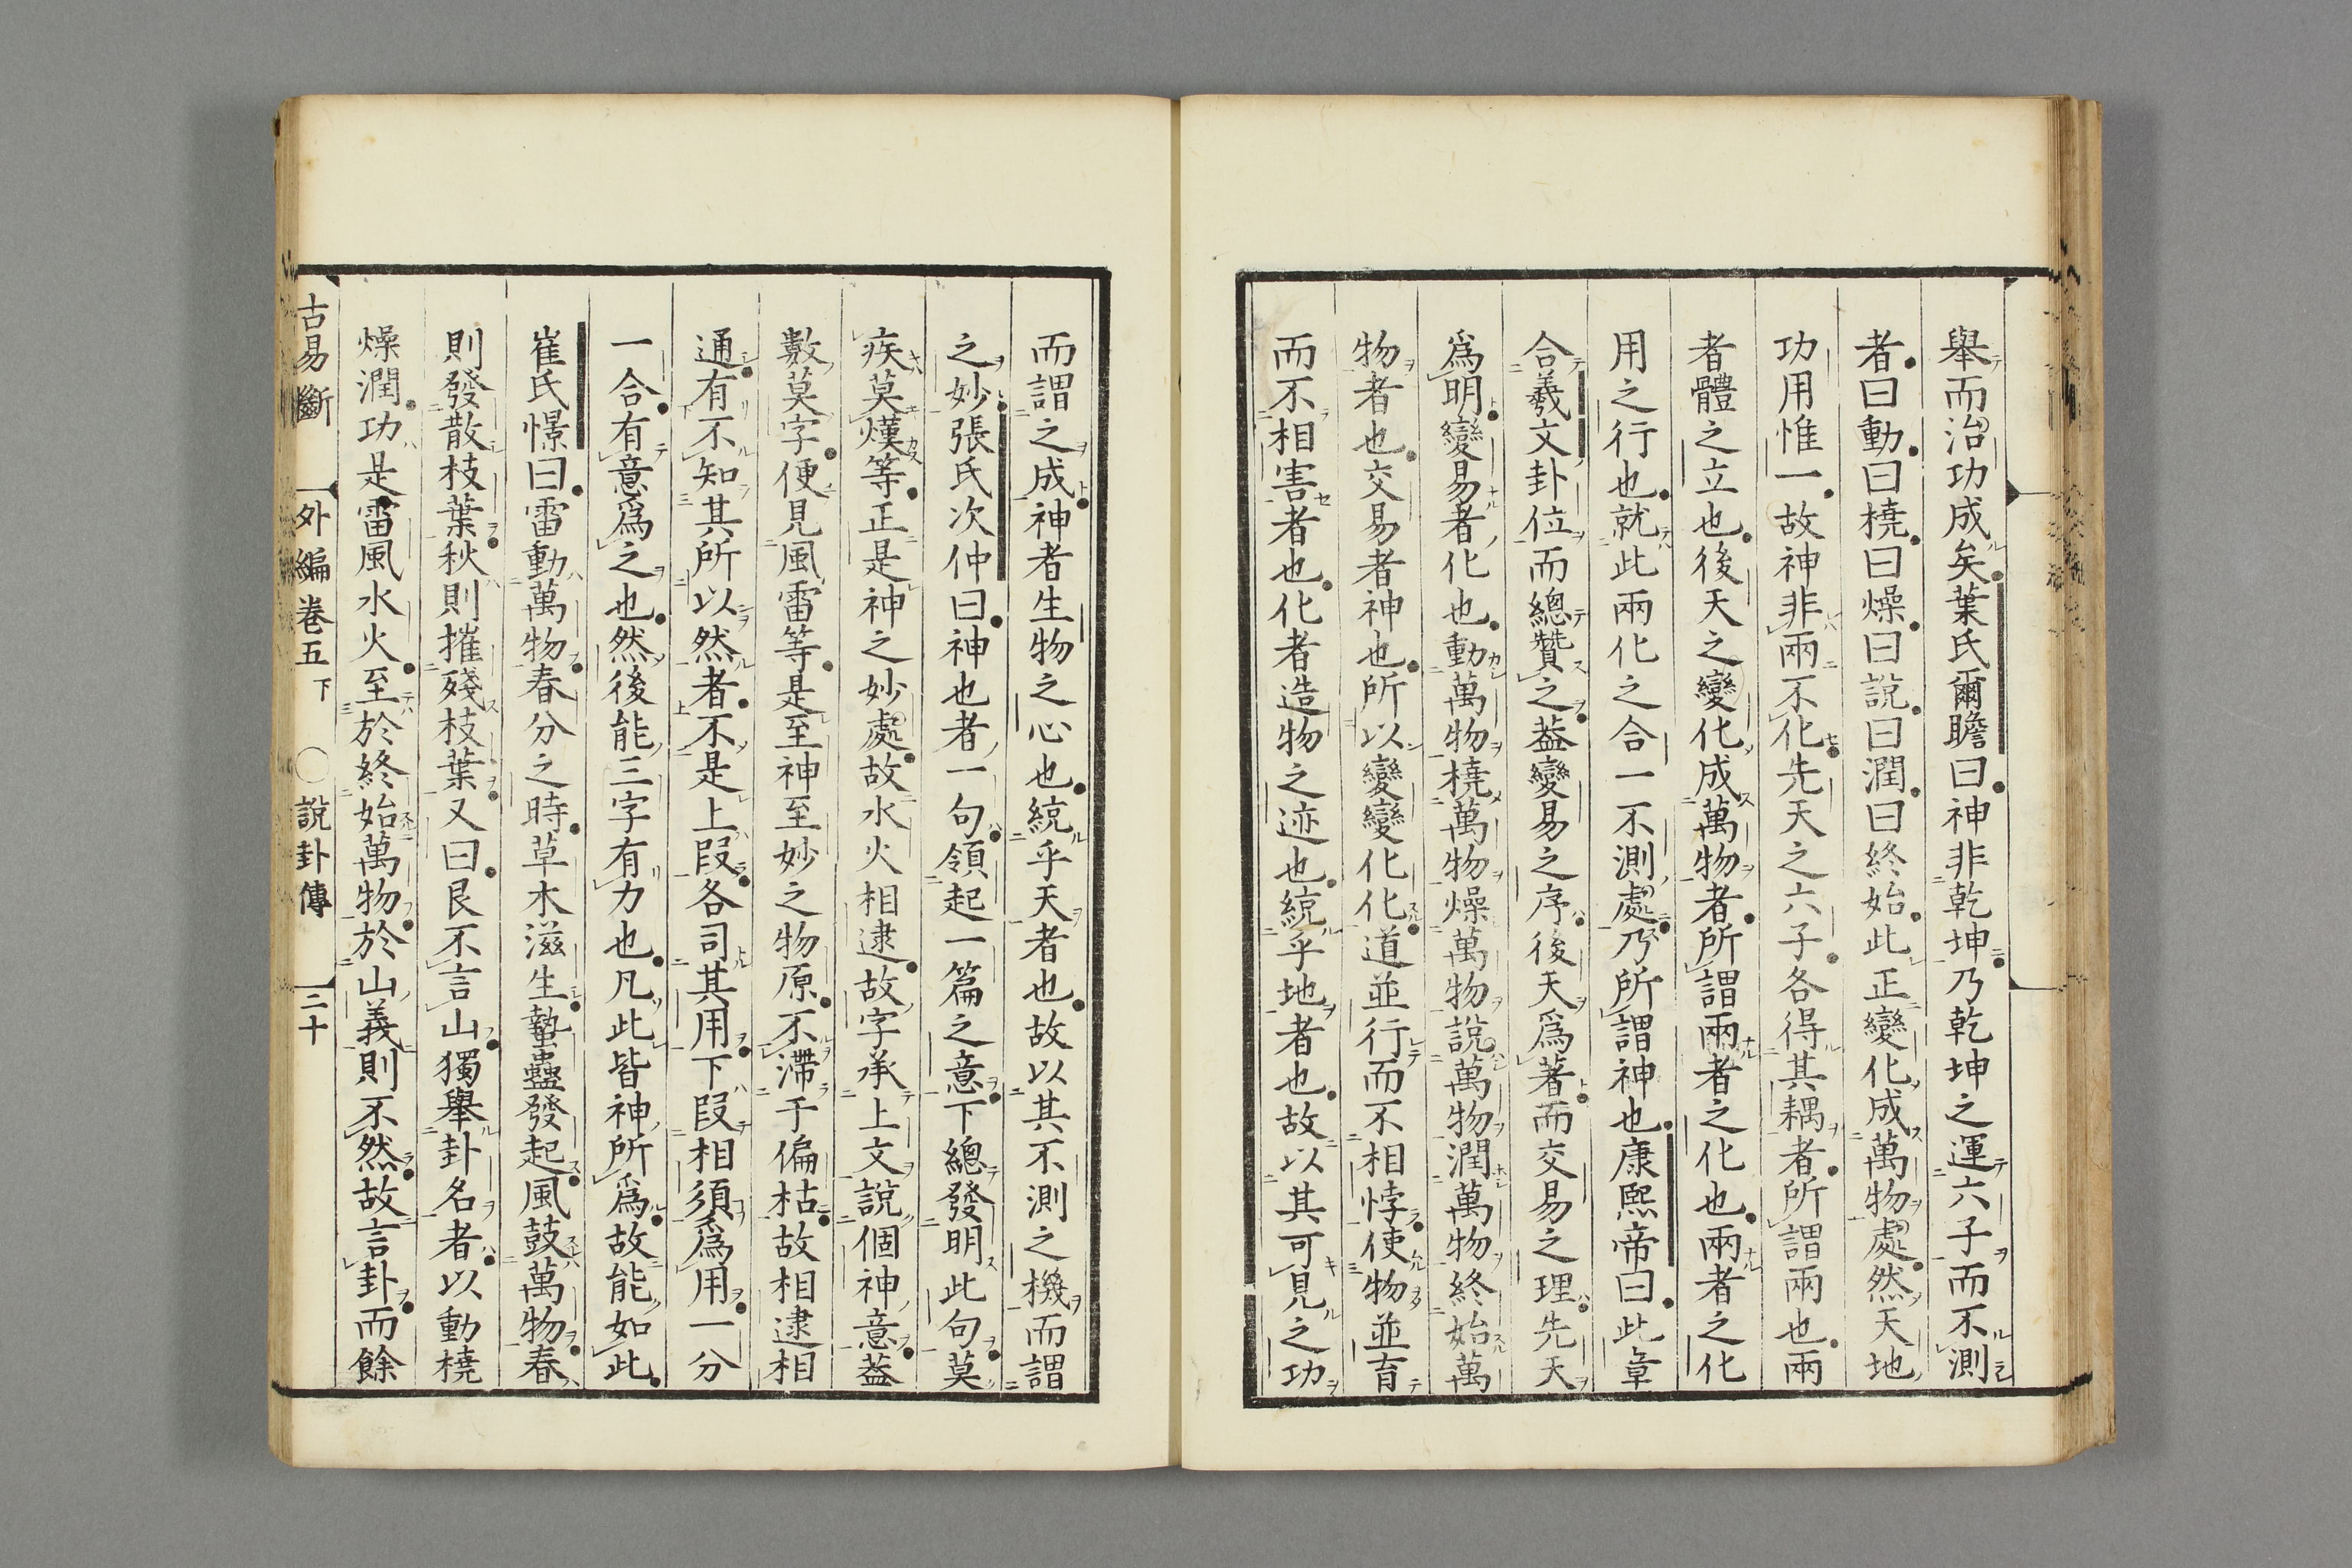 舉而治功成矣葉氏爾瞻曰神非乾坤乃乾坤之運六子而不測
者曰動曰橈曰燥曰說曰潤曰終始此正變化成萬物處然天地
功用惟一故神非兩不化先天之六子各得其耦者所謂兩也兩
者體之立也後天之變化成萬物者所謂兩者之化也兩者之化
用之行也就此兩化之合一不測處乃所謂神也康熙帝曰此章
合羲文卦位而總贊之葢變易之序後天爲著而交易之理先天
爲明變易者化也動萬物橈萬物燥萬物說萬物潤萬物終始萬
物者也交易者神也所以變變化化道並行而不相悖使物並育
而不相害者也化者造物之迹也統乎地者也故以其可見之功
而謂之成神者生物之心也統乎天者也故以其不測之機而謂
之妙張氏次仲曰神也者一句領起一篇之意下總發明此句莫
疾莫熯等正是神之妙處故水火相逮故字承上文說個神意葢
數莫字便見風雷等是至神至妙之物原不滯于偏枯故相逮相
通有不知其所以然者不是上段各司其用下段相須爲用一分
一合有意爲之也然後能三字有力也凡此皆神所爲故能如此
崔氏憬曰雷動萬物春分之時草木滋生蟄蟲發起風鼓萬物春
則發散枝葉秋則摧殘枝葉又曰艮不言山獨舉卦名者以動橈
燥潤功是雷風水火至於終始萬物於山義則不然故言卦而餘
古易斷 外編卷五下 〇說卦傳 二十